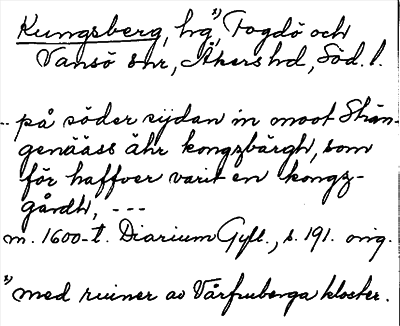 Kungsberg, hg¹⁾, Fogdö och
Vansö snr, Åkers hd, Söd. l.
-- på söder sijdan in moot Strän-
genääss ähr kongzbärgh, som
för haffver varit en kongz-
gårdh, ---
m. 1600-t. Diarium Gyll., s. 191. orig.
¹⁾ med ruiner av Vårfruberga kloster.